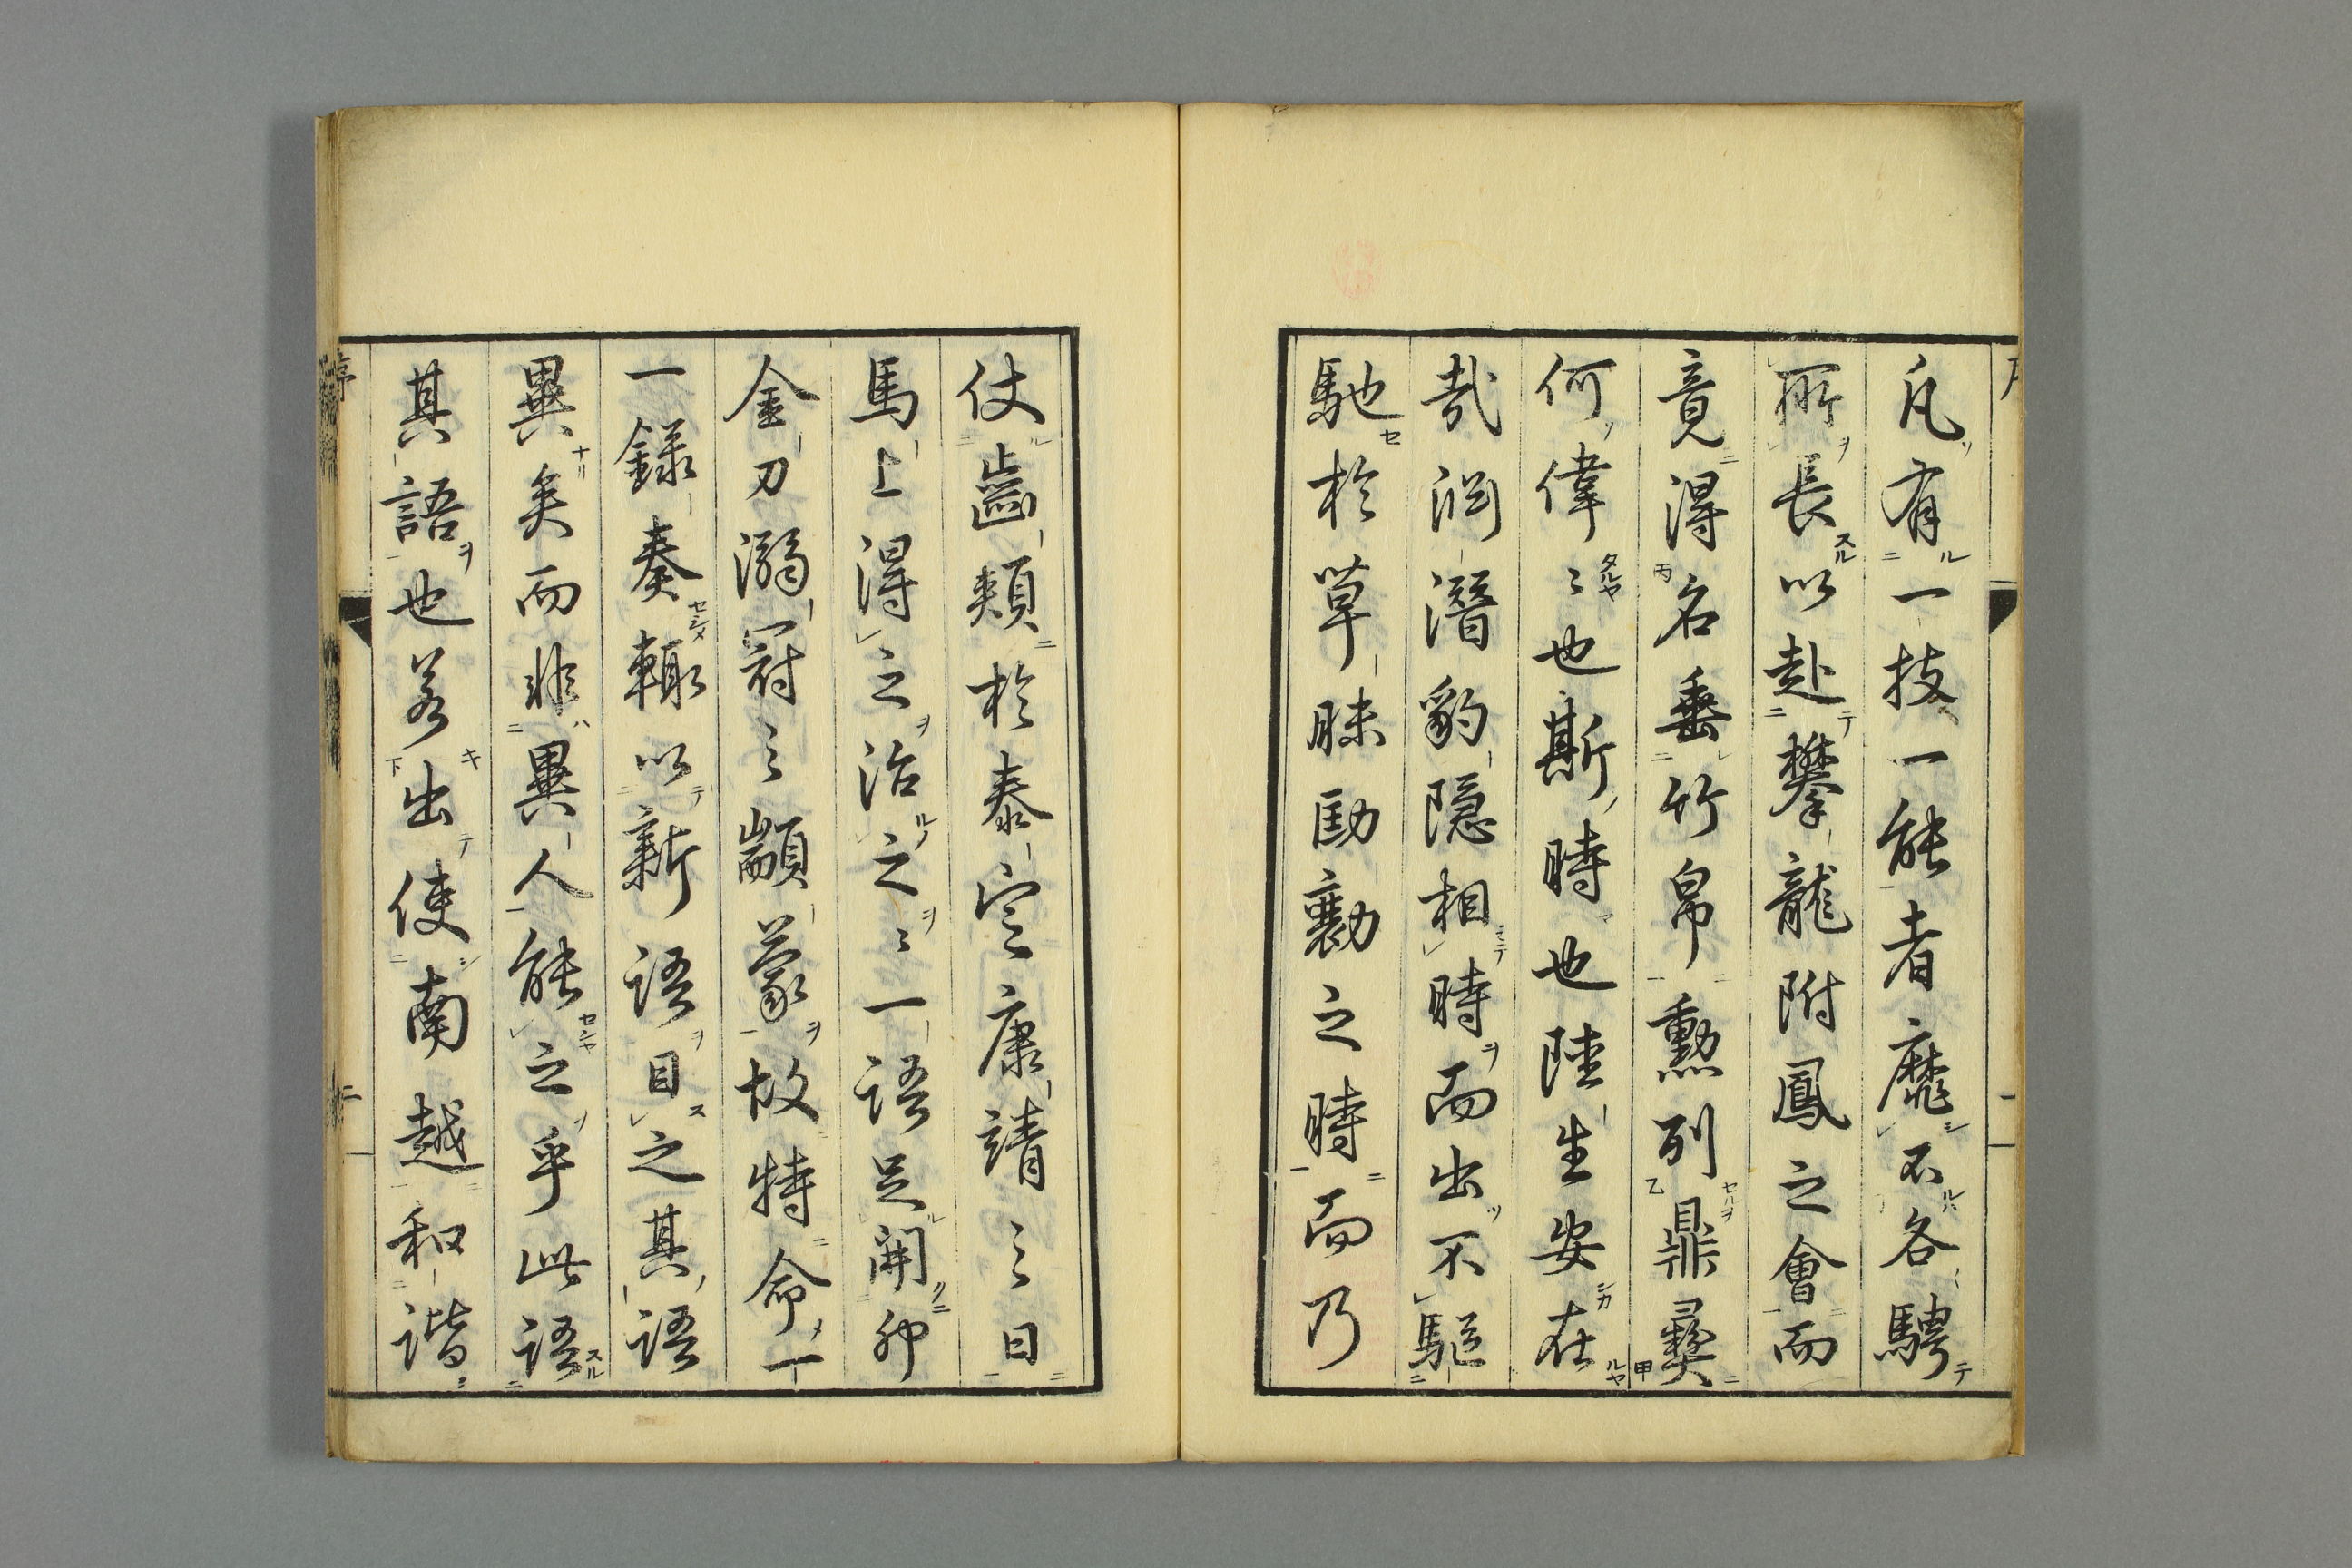 凡有一技一能者靡不各騁
所長以赴攀龍附鳳之會而
竟得名垂竹帛勲列鼎彛
何偉〻也斯時也陸生安在
哉渕潛豹隠相時而出不駆
馳於草昧劻勷之時而乃
仗齒頰於泰定康靖之日
馬上得之治之〻一語足開卯
金刀溺冠之顓蒙故特命一
一録奏輙以新語目之其語
異矣而非異人能之乎此語
其語也若出使南越和諧
序
二